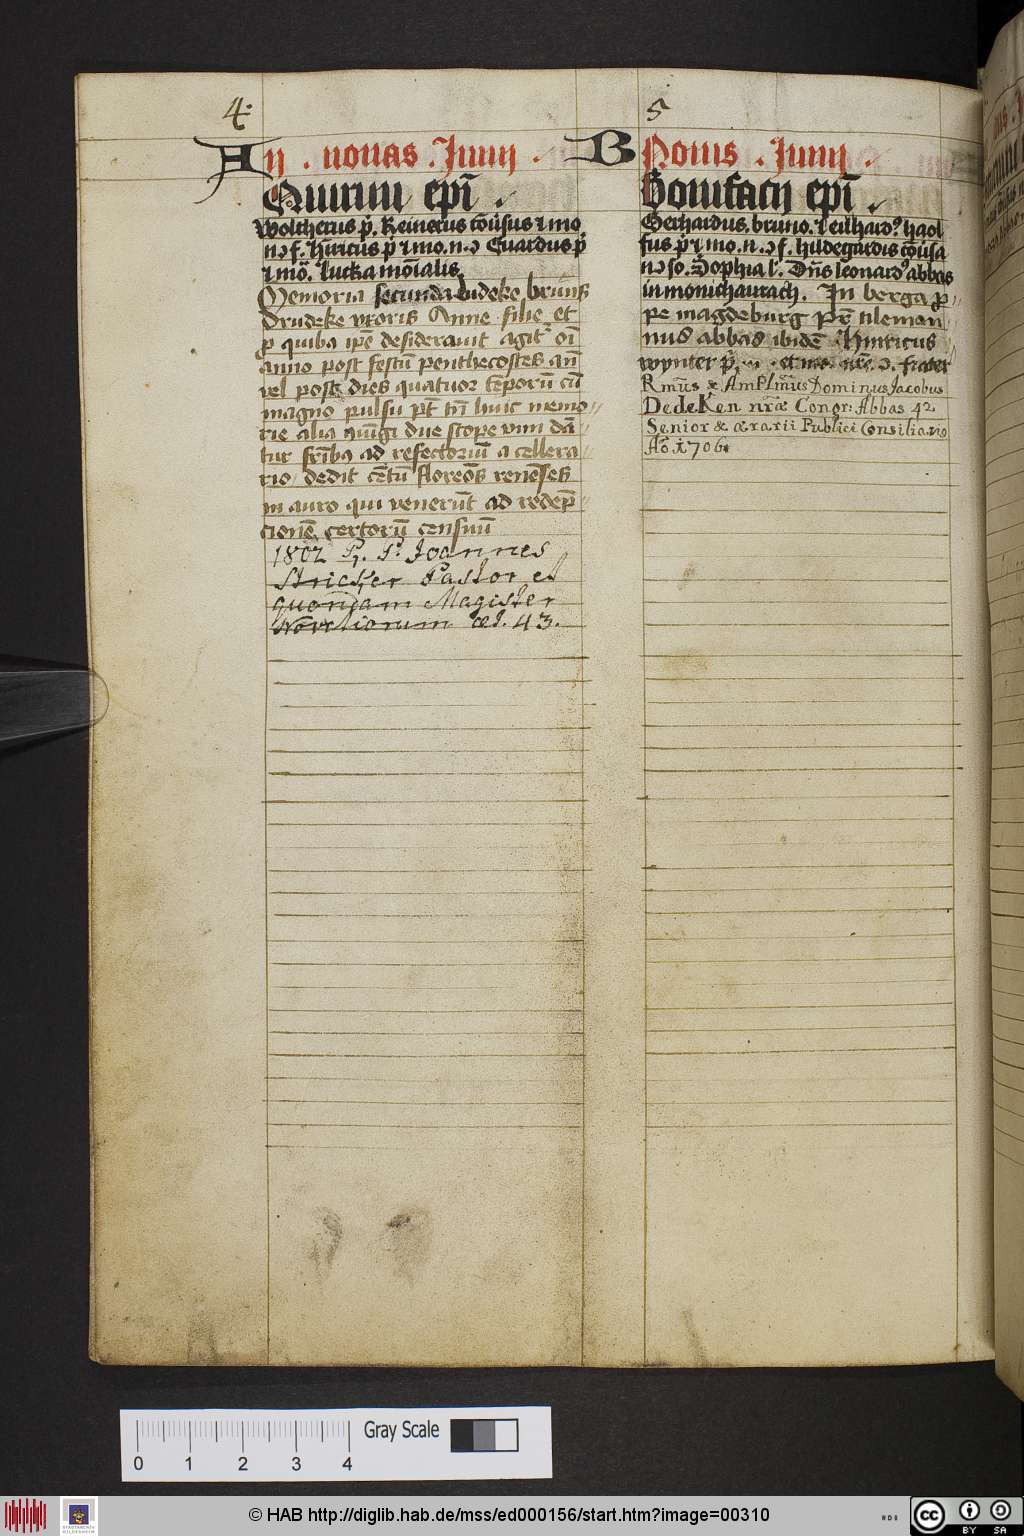 4.
A ij . nonas . Junij .
Quirini ep̄i .
Woltherus p̄. Reinerus cōūsus ⁊ mo
nɔ f. hīricus p̄ ⁊ mo. nɔ Euardus p̄
⁊ mō. Lucka mōialis.
Memoria secunda Ludeke bruns
Drudeke vxoris Anne filie et
p quibꝰ ip̄e desiderauit agit᷑ oī
anno post festū penthecostes an̄
vel post dies quatuor tēporū cū
magno pulsu
rie alia due scope vini dā
tur fr̄ibꝰ ad refectoriū a cellera
rio dedit cētū floreōs renēses
in auro qui venerūt ad redēp
cionē certorū censuū
1802 P. F. Joannes
Stricker Pastor et
quondam Magister
Novitiorum æt. 43.
5
B Nonis . Junij .
Bonifacij ep̄i .
Gerhardus. bruno. Leithardꝰ haol
fus. p̄ ⁊ mo. nɔ f. hildegardis cōūsa
nɔ so. Sophia l'. Dn̄s leonardꝰ abbas
in monichaurach. In berga p
pe magdeburg tileman
nus abbas ibidē Hinricus
wynter p̄ et mo. nr̄e ɔ. frater
Rmūs & Amplmūs Dominus Jacobus
DedeKen nr̄æ Congr: Abbas 42
Senior & ærarii Publici Consiliario
Aō. 1706.
0 1 2 3 4
Gray Scale
© HAB http://diglib.hab.de/mss/ed000156/start.htm?image=00310
STADTARCHIV HILDESHEIM
cc BY SA